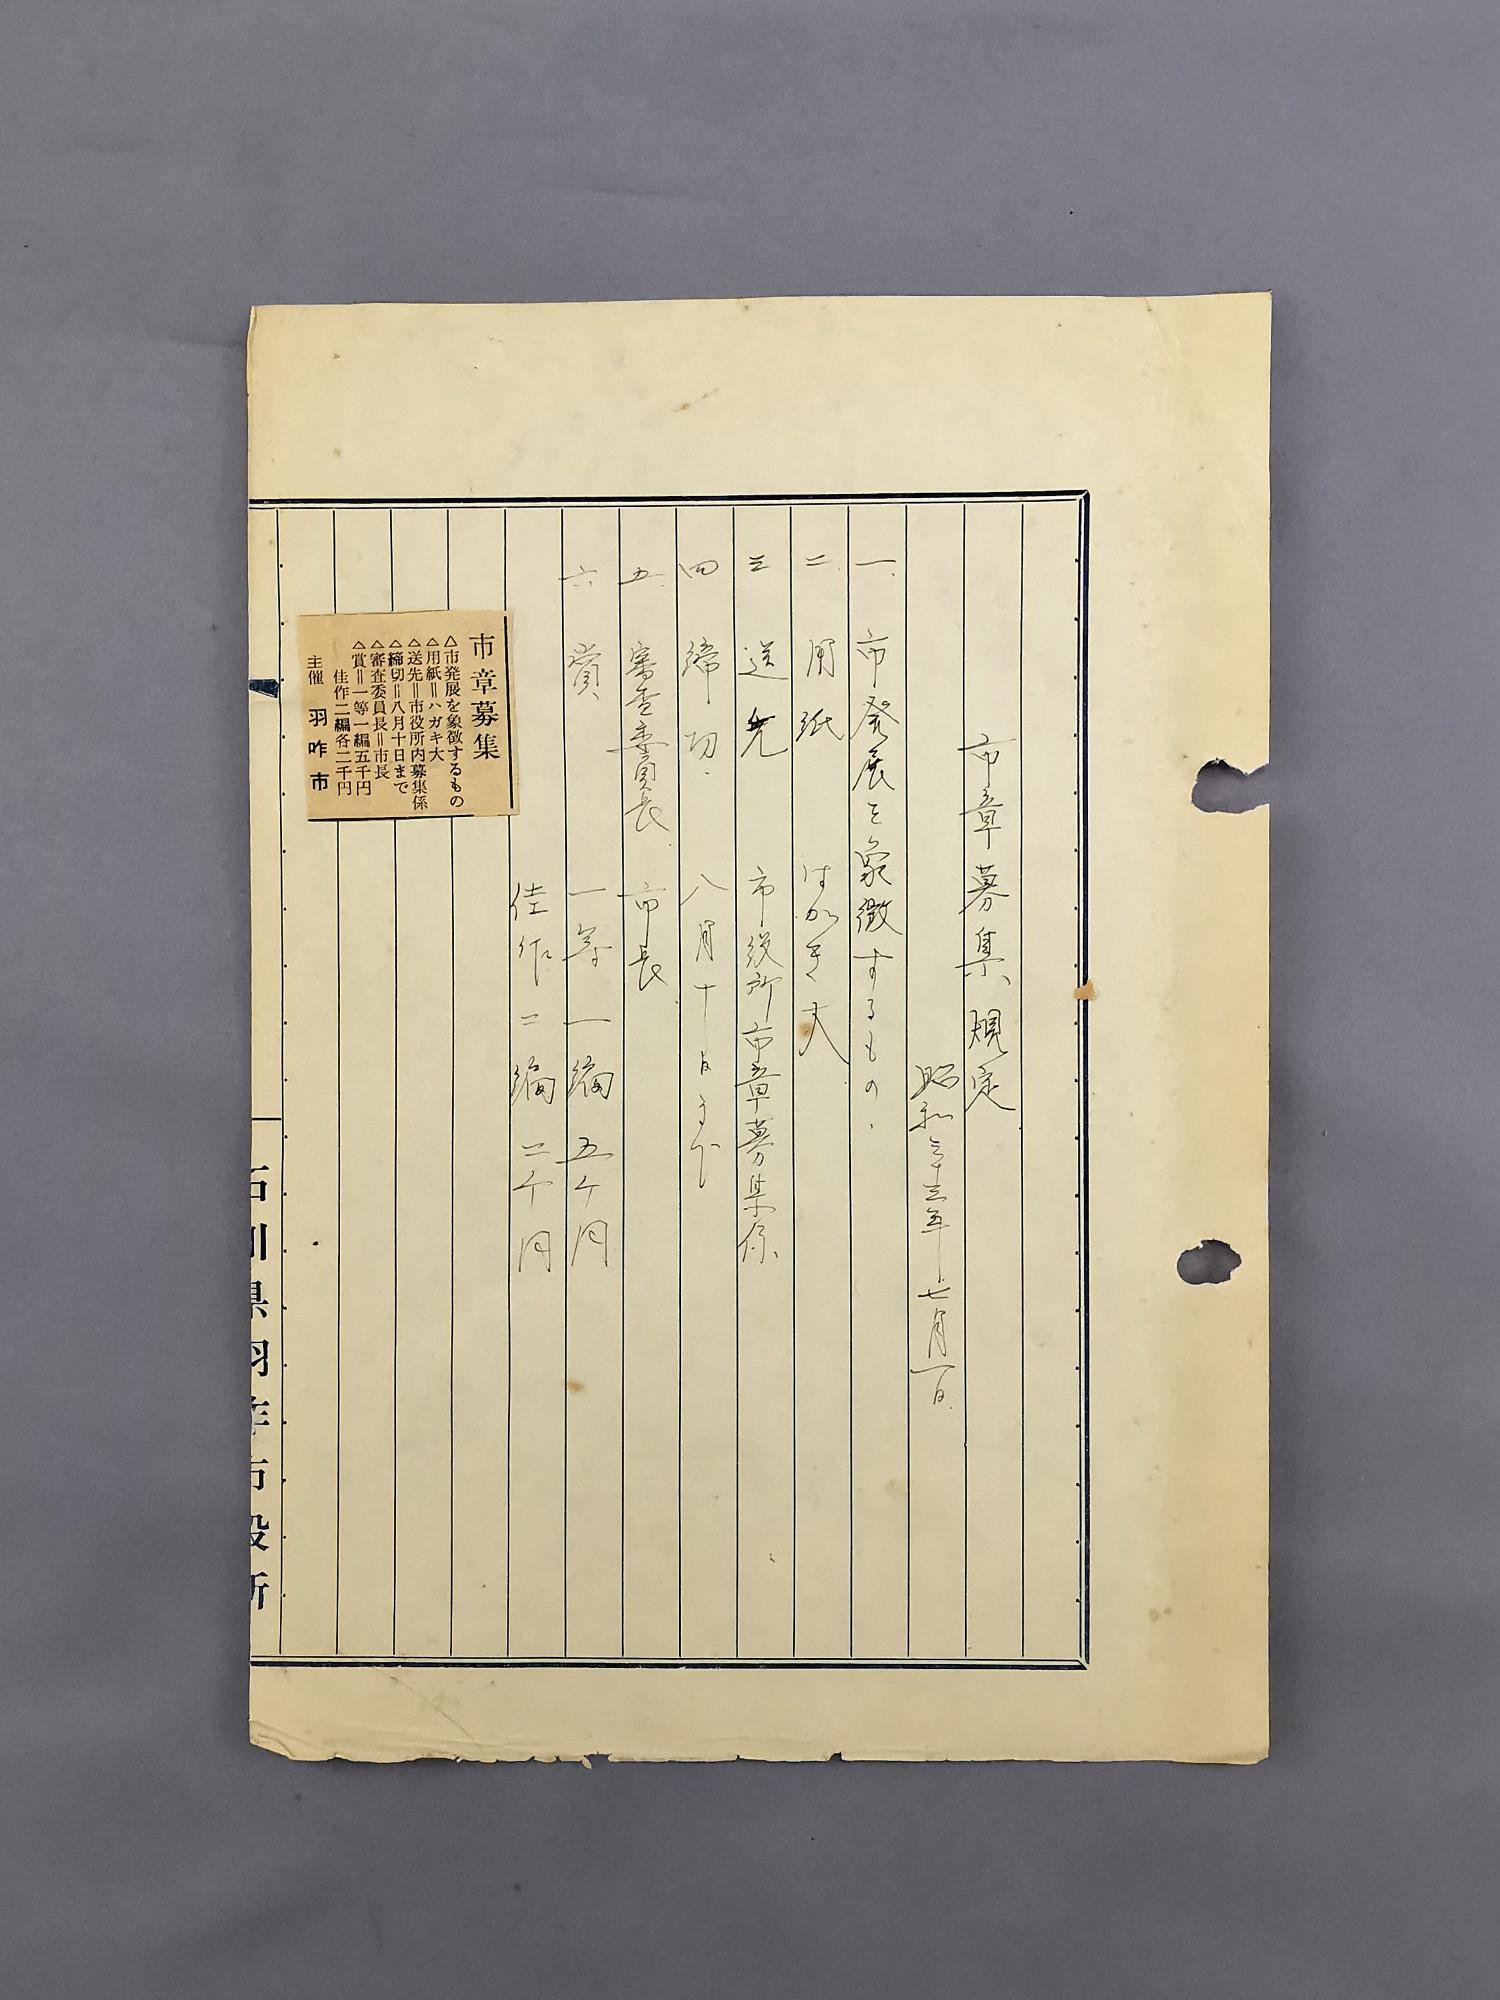 市章募集規定
昭和三十三年七月一日
一、市発展を象徴するもの、
二、用紙 はがき大
三 送先 市役所市章募集係
四 締切、八月十日まで
五、審査委員長 市長
六 賞 一等 一編 五千円
佳作 二編 二千円
市章募集
△市発展を象徴するもの
△用紙＝ハガキ大
△送先＝市役所内募集係
△締切＝八月十日まで
△審査委員長＝市長
△賞＝一等一編五千円
佳作二編各二千円
主催 羽咋市
石川県羽咋市役所